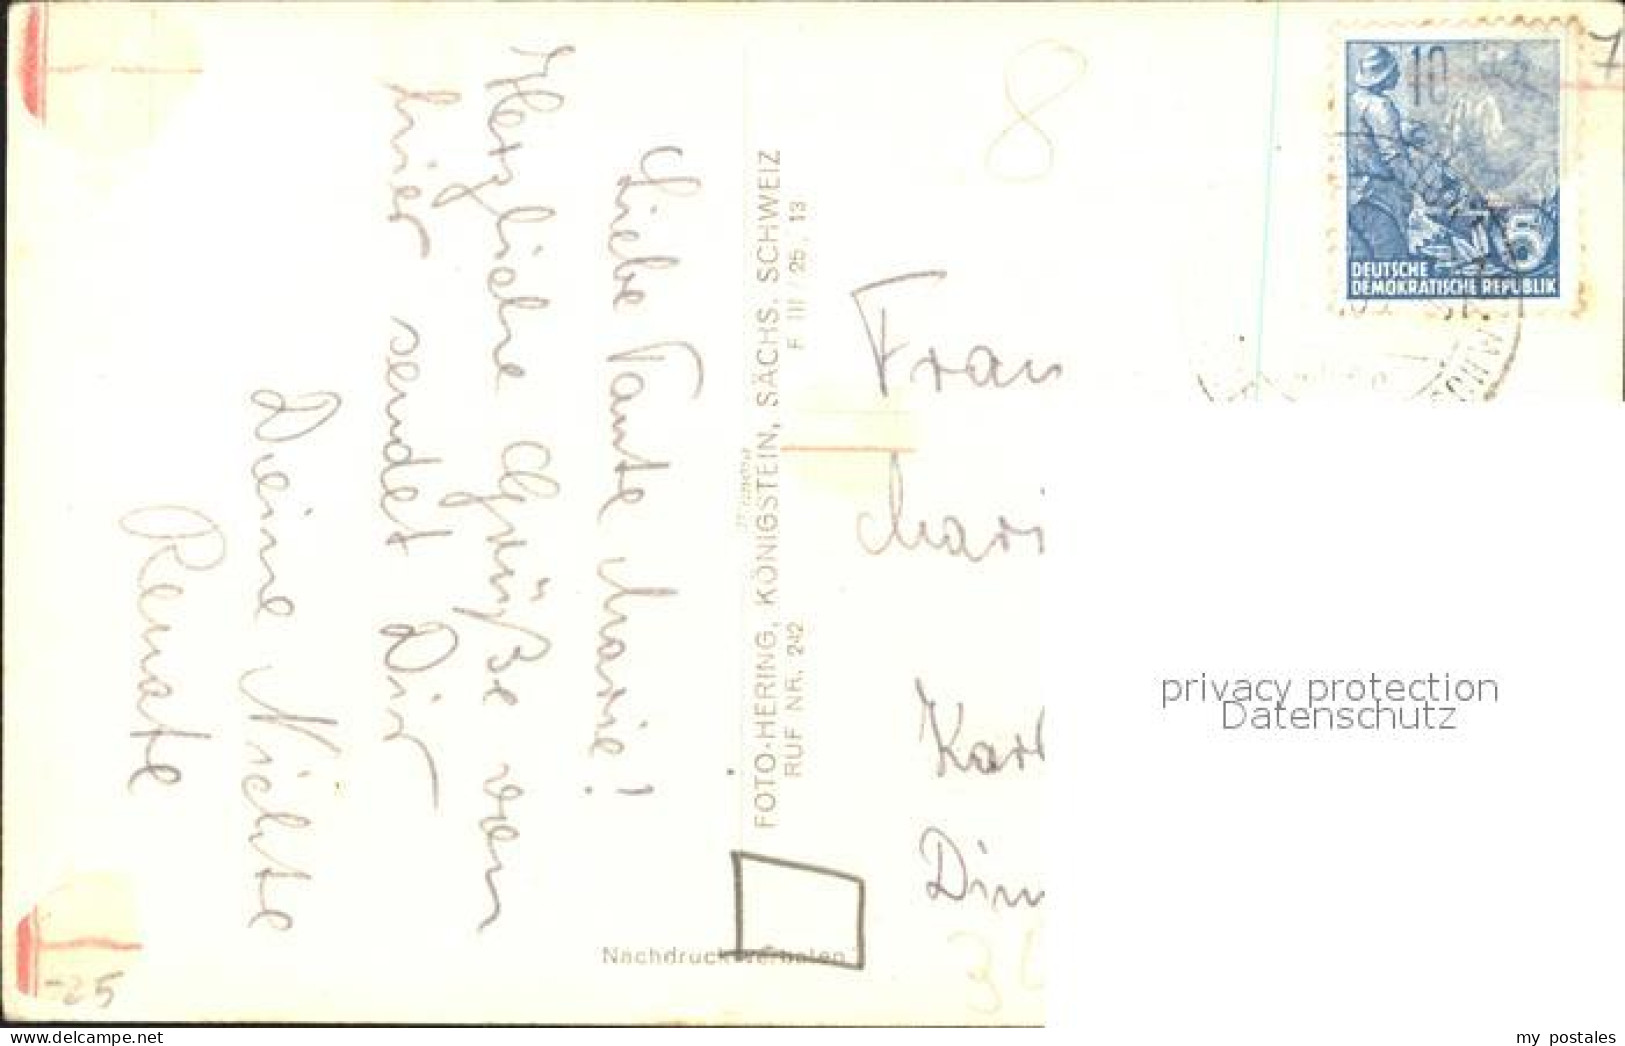 Liebe Tante Marie!
Herzliche Grüße von
hier sendet Dir
Deine Nichte
Renate
FOTO-HERING, KÖNIGSTEIN, SÄCHS. SCHWEIZ
RUF NR. 242 F III/25, 13
Nachdruck verboten
8
7
10
5
DEUTSCHE
DEMOKRATISCHE REPUBLIK
Frau
Mari
Karl
Dim
-25
privacy protection
Datenschutz
my postales
www.delcampe.net